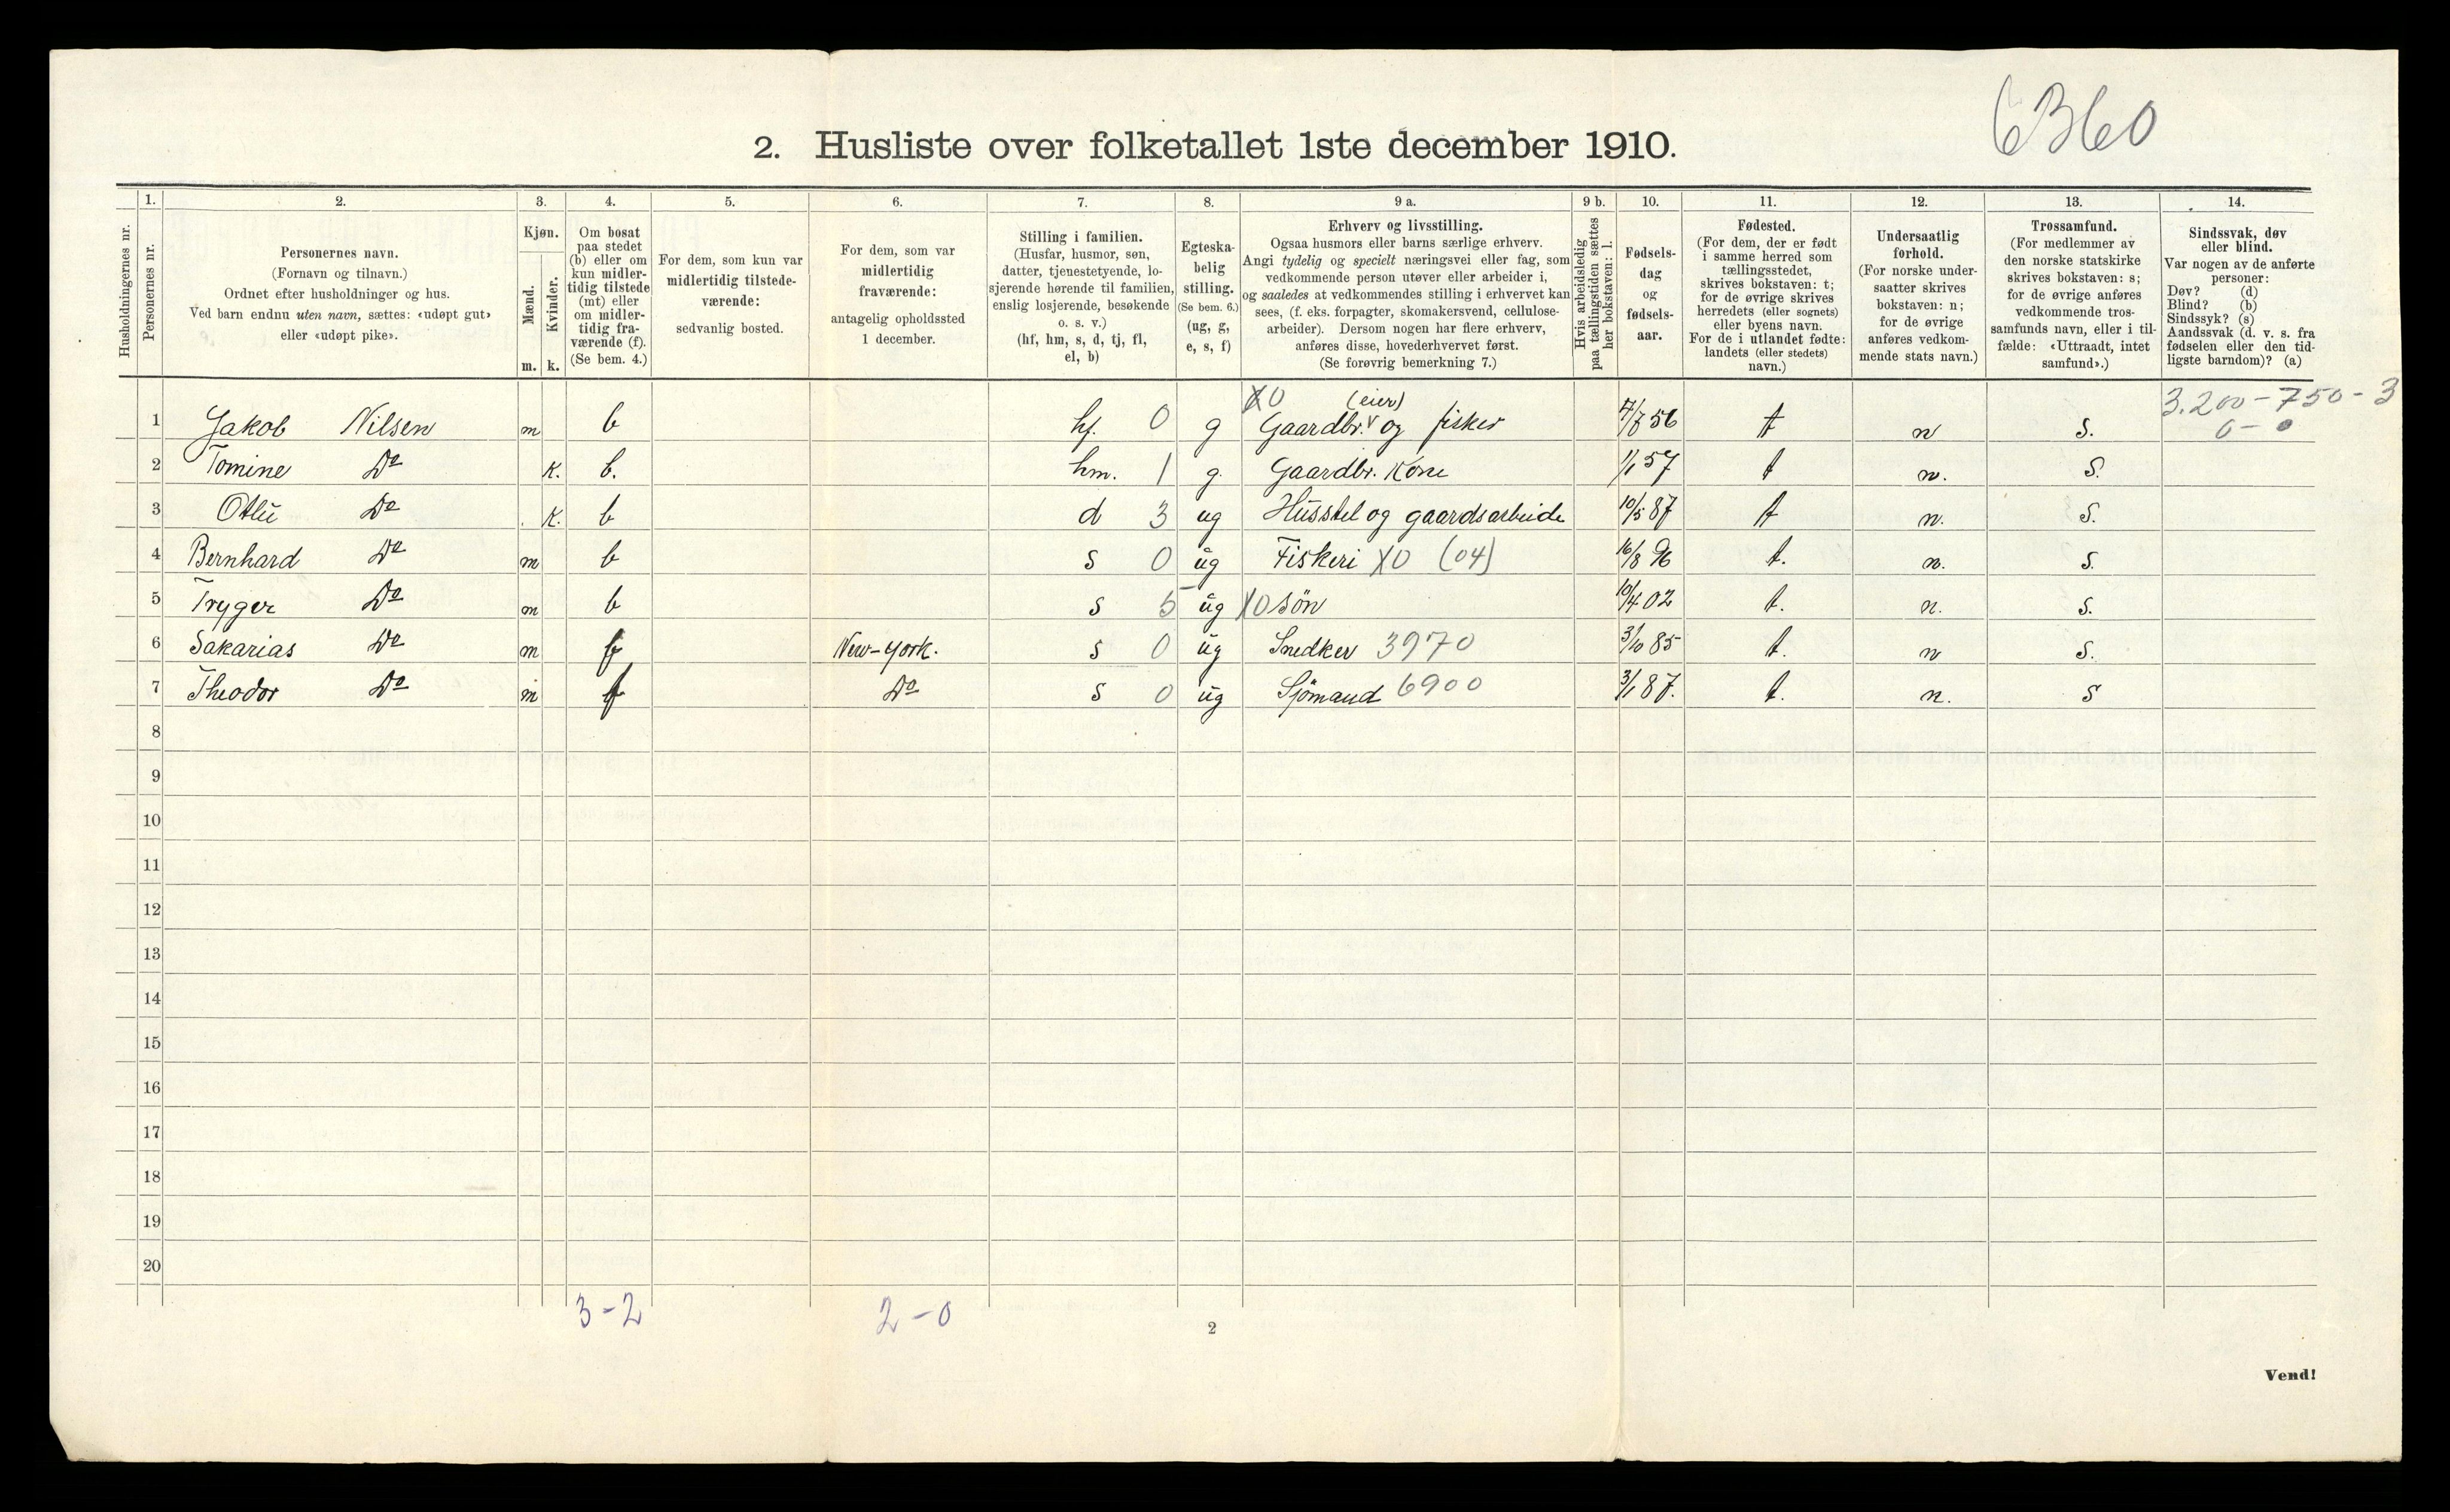 6360
2. Husliste over folketallet 1ste december 1910.
Husholdningernes nr.
1.
Personernes nr.
2.
Personernes navn.
(Fornavn og tilnavn.)
Ordnet efter husholdninger og hus.
Ved barn endnu uten navn, sættes: «udøpt gut»
eller «udøpt pike».
3.
Kjøn.
Mænd.
Kvinder.
m. k.
4.
Om bosat
paa stedet
(b) eller om
kun midler-
tidig tilstede
(mt) eller
om midler-
tidig fra-
værende (f).
(Se bem. 4.)
5.
For dem, som kun var
midlertidig tilstede-
værende:
sedvanlig bosted.
6.
For dem, som var
midlertidig
fraværende:
antagelig opholdssted
1 december.
7.
Stilling i familien.
(Husfar, husmor, søn,
datter, tjenestetyende, lo-
sjerende hørende til familien,
enslig losjerende, besøkende
o. s. v.)
(hf, hm, s, d, tj, fl,
el, b)
8.
Egteska-
belig
stilling.
(Se bem. 6.)
(ug, g,
e, s, f)
9 a.
Erhverv og livsstilling.
Ogsaa husmors eller barns særlige erhverv.
Angi tydelig og specielt næringsvei eller fag, som
vedkommende person utøver eller arbeider i,
og saaledes at vedkommendes stilling i erhvervet kan
sees, (f. eks. forpagter, skomakersvend, cellulose-
arbeider). Dersom nogen har flere erhverv,
anføres disse, hovederhvervet først.
(Se forøvrig bemerkning 7.)
9 b.
Hvis arbeidsledig
paa tællingstiden sættes
her bokstaven: l.
10.
Fødsels-
dag
og
fødsels-
aar.
11.
Fødested.
(For dem, der er født
i samme herred som
tællingsstedet,
skrives bokstaven: t;
for de øvrige skrives
herredets (eller sognets)
eller byens navn.
For de i utlandet fødte:
landets (eller stedets)
navn.)
12.
Undersaatlig
forhold.
(For norske under-
saatter skrives
bokstaven: n;
for de øvrige
anføres vedkom-
mende stats navn.)
13.
Trossamfund.
(For medlemmer av
den norske statskirke
skrives bokstaven: s;
for de øvrige anføres
vedkommende tros-
samfunds navn, eller i til-
fælde: «Uttraadt, intet
samfund».)
14.
Sindssvak, døv
eller blind.
Var nogen av de anførte
personer:
Døv? (d)
Blind? (b)
Sindssyk? (s)
Aandssvak (d. v. s. fra
fødselen eller den tid-
ligste barndom)? (a)
X0 (eier) 3.200 - 750 - 3
1 Jakob Nilsen m b hf. 0 g Gaardbr. og fisker 56 t n s. 0 - 0
2 Tomine Do k. b. hm. 1 g. Gaardbr. Kone 1/1 57 t n. s.
3 Otlu Do k. b d 3 ug Husstel og gaardsarbeide 10/5 87 t n. s.
4 Bernhard Do m b s 0 ug Fiskeri X0 (04) 16/8 96 t. n. s.
5 Tryger Do m b s 5 ug X0 søn 10/4 02 t. n. s.
6 Sakarias Do m f New-York. s 0 ug Snedker 3970 3/10 85 t. n s.
7 Theodor Do m f Do s 0 ug Sjømand 6900 3/1 87. t. n. s
8
9
10
11
12
13
14
15
16
17
18
19
20
3-2 2-0
2
Vend!